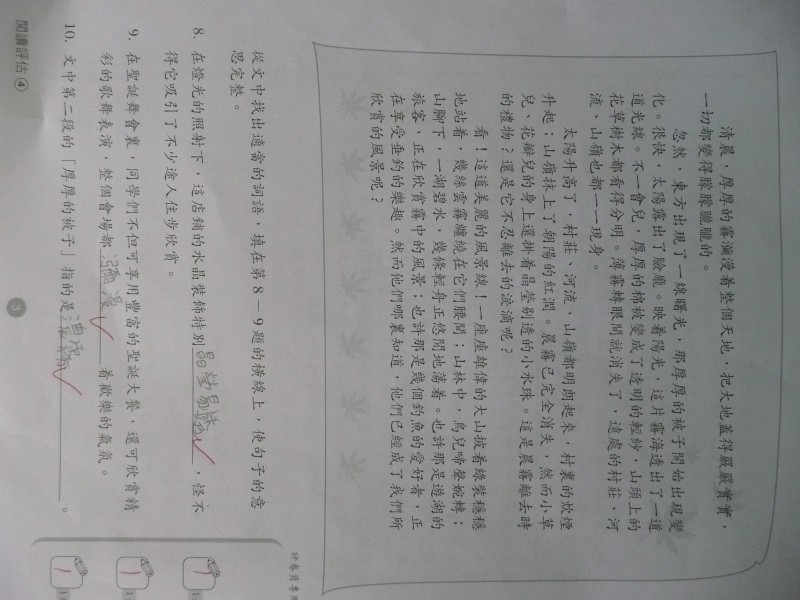 清晨，厚厚的霧瀰漫着整個天地，把大地蓋得嚴嚴實實，
一切都變得朦朦朧朧的。
忽然，東方出現了一線曙光，那厚厚的被子開始出現變
化。很快，太陽露出了臉龐。映着陽光，這片霧海透出了一道
道光線。不一會兒，厚厚的棉被變成了透明的輕紗，山頭上的
花草樹木都看得分明。薄霧轉眼間就消失了，遠處的村莊、河
流、山嶺也都一一現身。
太陽升高了，村莊、河流、山嶺都明朗起來，村裏的炊煙
升起；山嶺抹上了朝陽的紅潤。晨霧已完全消失，然而小草
兒、花瓣兒的身上還掛着晶瑩剔透的小水珠。這是晨霧離去時
的禮物？還是它不忍離去的淚滴呢？
看！這道美麗的風景線！一座座雄偉的大山披着綠裝穩穩
地站着，幾絲雲霧纏繞在它們腰間；山林中，鳥兒啼聲婉轉；
山腳下，一湖碧水，幾條輕舟正悠閒地蕩着。也許那是遊湖的
旅客，正在欣賞霧中的風景；也許那是幾個釣魚的愛好者，正
在享受垂釣的樂趣。然而他們哪裏知道，他們已經成了我們所
欣賞的風景呢？
從文中找出適當的詞語，填在第8－9題的橫線上，使句子的意
思完整。
8. 在燈光的照射下，這店鋪的水晶裝飾特別晶瑩剔透，怪不
得它吸引了不少途人住步欣賞。
9. 在聖誕舞會裏，同學們不但可享用豐富的聖誕大餐，還可欣賞精
彩的歌舞表演，整個會場都瀰漫着歡樂的氣氛。
10. 文中第二段的「厚厚的被子」指的是濃霧。
評卷員專用
1
1
1
閱讀評估④
3